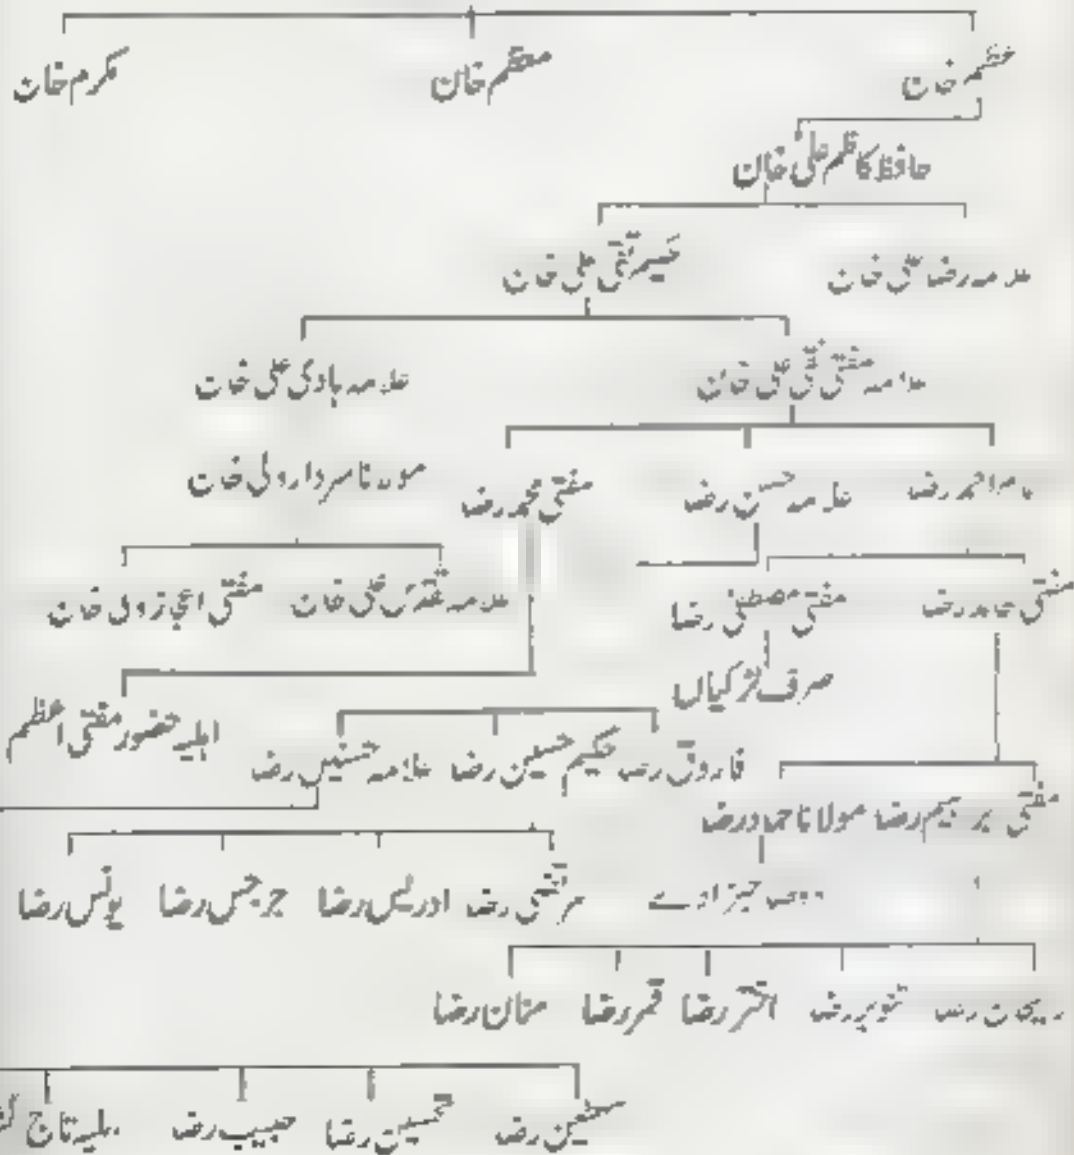 اعظم خان معظم خان مکرم خان
حافظ کاظم علی خان
علامہ رضا علی خان حکیم تقی علی خان
علامہ مفتی نقی علی خان علامہ ہادی علی خان
احمد رضا علامہ حسن رضا مفتی محمد رضا مولانا سردار ولی خان
مفتی حامد رضا مفتی مصطفیٰ رضا علامہ تقدس علی خان مفتی اعجاز ولی خان
صرف لڑکیاں
اہلیہ حضور مفتی اعظم
فاروق رضا حکیم حسین رضا علامہ حسنین رضا
مفتی ابراہیم رضا مولانا حماد رضا
صاحبزادے
مرتضی رضا ادریس رضا جرجس رضا یونس رضا
ریحان رضا تنویر رضا اختر رضا قمر رضا منان رضا
سبطین رضا تحسین رضا حبیب رضا اہلیہ تاج